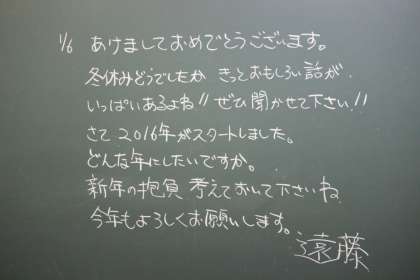 1/6 あけましておめでとうございます。
冬休みどうでしたか きっとおもしろい話が
いっぱいあるよね!! ぜひ聞かせて下さい!!
さて2016年がスタートしました。
どんな年にしたいですか。
新年の抱負 考えておいて下さいね
今年もよろしくお願いします。
遠藤